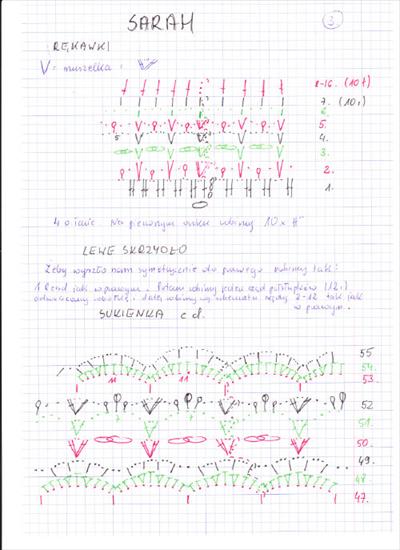 SARAH
3
RĘKAWKI
V = muszelka :
8-16. (10 t)
7. (10 )
6.
5.
5
4.
3.
2.
1.
4 o Na pierwszym robimy 10 x
LEWE SKRZYDŁO
Żeby wyszło nam symetrycznie do prawego robimy tak:
1 Rząd jak w prawym. Potem robimy jeden rząd półsłupków (2.)
odwracamy robótkę i dalej robimy wg schematu rzędy 2-12 tak jak
w prawym.
SUKIENKA c d.
55
54.
11 11 53
52
51.
50.
49.
48
47.